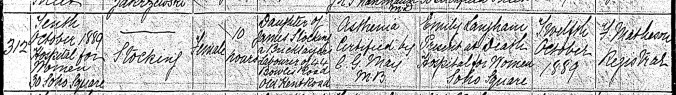 312
Tenth
October 1889
Hospital for
Women
30 Soho Square
Stocking
Female
10
hours
Daughter of
James Stocking
a Bricklayers
Labourer of 44
Bowles Road
Old Kent Road
Asthenia
Certified by
C G May
M.B.
Emily Langham
Present at Death
Hospital for Women
Soho Square
Twelfth
October
1889
Registrar